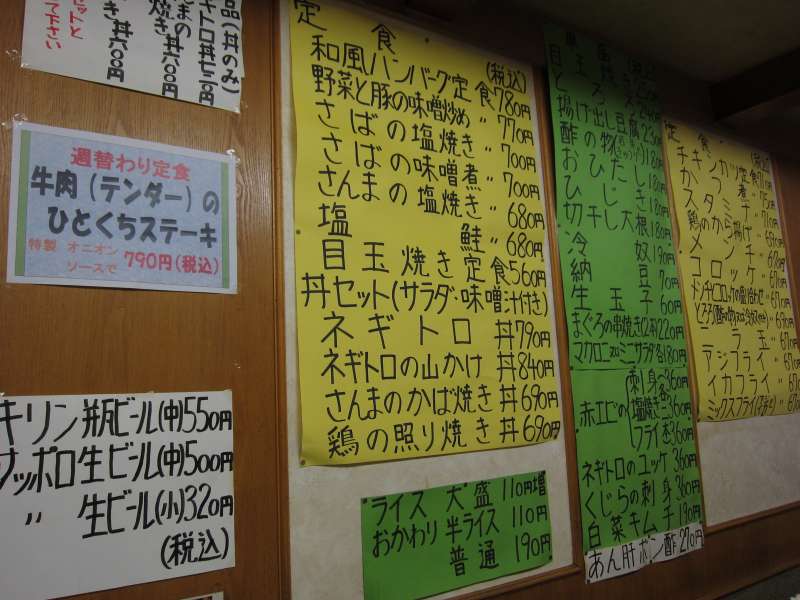 品(丼のみ)
ギトロ丼
焼き丼
セットと
て下さい
週替わり定食
牛肉(テンダー)の
ひとくちステーキ
特製 オニオン
ソースで 790円(税込)
キリン 瓶ビール(中)550円
サッポロ生ビール(中)500円
〃 生ビール(小)320円
(税込)
定食
(税込)
和風ハンバーグ定食780円
野菜と豚の味噌炒め〃770円
さばの塩焼き〃700円
さばの味噌煮〃700円
さんまの塩焼き〃680円
塩鮭〃680円
目玉焼き定食560円
丼セット(サラダ・味噌汁付き)
ネギトロ丼790円
ネギトロの山かけ丼840円
さんまのかば焼き丼690円
鶏の照り焼き丼690円
ライス 大盛 110円増
おかわり 半ライス 110円
普通 190円
揚げ出し豆腐230
酢の物
おひたし180円
ひじき180円
切干し大根180円
冷奴130円
納豆70円
生玉子60円
まぐろの串焼き(2本)220円
マカロニ
ミニサラダ各180円
赤エビの
刺身各360円
塩焼き
フライ
ネギトロのユッケ360円
くじらの刺身360円
白菜キムチ190円
あん肝ポン酢270円
定食(税込)
チキンカツ定食
かつ煮
スタミナ
鶏のから揚げ
メンチ
コロッケ
ニラ玉
アジフライ
イカフライ
ミックスフライ